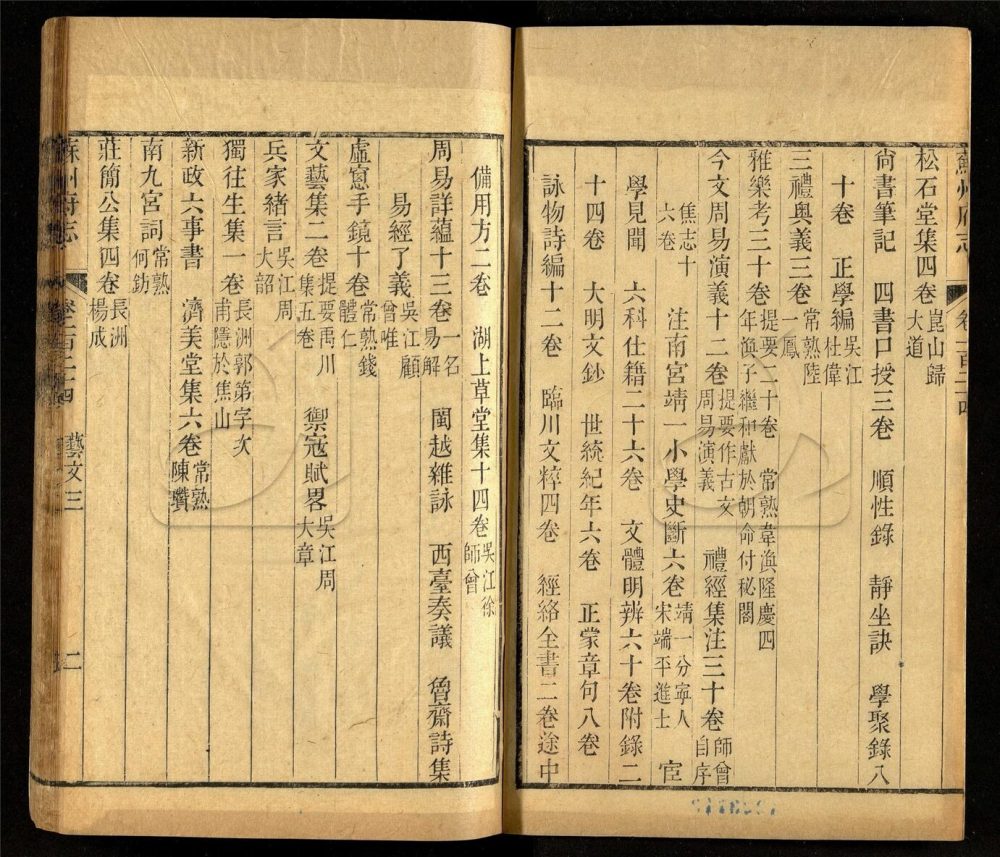 蘇州府志
卷一百三十四
松石堂集四卷崑山歸大道
尙書筆記 四書口授三卷 順性錄 靜坐訣 學聚錄八
十卷 正學編吳江杜偉
三禮奧義三卷常熟陸一鳳
雅樂考三十卷提要二十卷常熟韋渙隆慶四年渙子繼和獻於朝命付秘閣
今文周易演義十二卷提要作古文周易演義 禮經集注三十卷師曾自序
焦志十六卷 注南宮靖一小學史斷六卷靖一分寧人宋端平進士 宦
學見聞 六科仕籍二十六卷 文體明辨六十卷附錄二
十四卷 大明文鈔 世統紀年六卷 正蒙章句八卷
詠物詩編十二卷 臨川文粹四卷 經絡全書二卷途中
備用方二卷 湖上草堂集十四卷吳江徐師曾
周易詳蘊十三卷一名易解 閩越雜詠 西臺奏議 魯齋詩集
易經了義吳江顧曾唯
虛窻手鏡十卷常熟錢體仁
文藝集二卷提要禹川集五卷 禦寇賦畧吳江周大章
兵家緒言吳江周大韶
獨往生集一卷長洲郭第字次甫隱於焦山
新政六事書 濟美堂集六卷常熟陳瓚
南九宮詞常熟何鈁
莊簡公集四卷長洲楊成
蘇州府志
藝文三
二